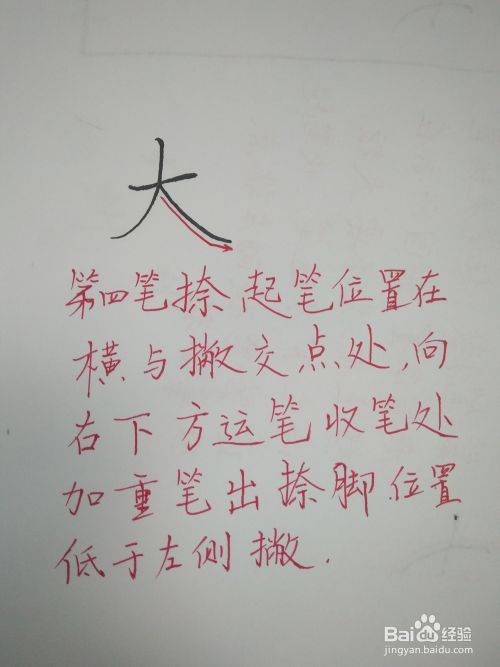 大
第四笔捺起笔位置在
横与撇交点处,向
右下方运笔收笔处
加重笔出捺脚.位置
低于左侧撇.
Baidu 经验
jingyan.baidu.com